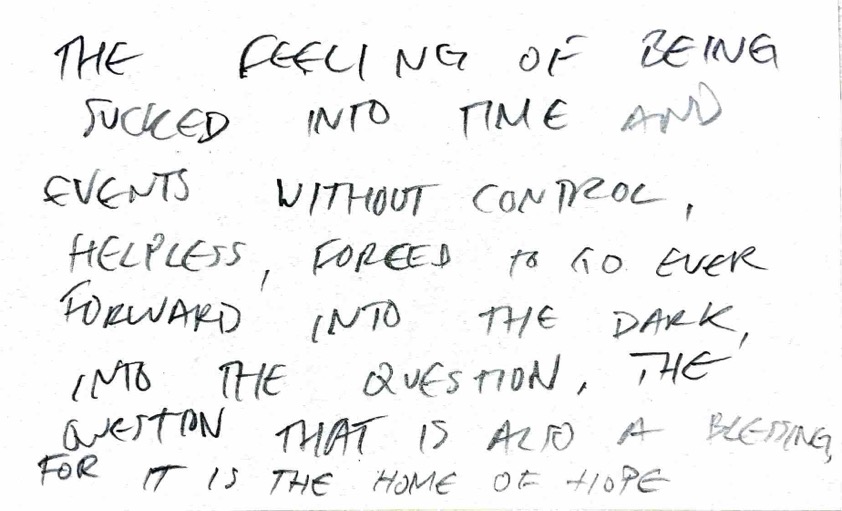 THE FEELING OF BEING
SUCKED INTO TIME AND
EVENTS WITHOUT CONTROL,
HELPLESS, FORCED TO GO EVER
FORWARD INTO THE DARK,
INTO THE QUESTION, THE
QUESTION THAT IS ALSO A BLESSING,
FOR IT IS THE HOME OF HOPE